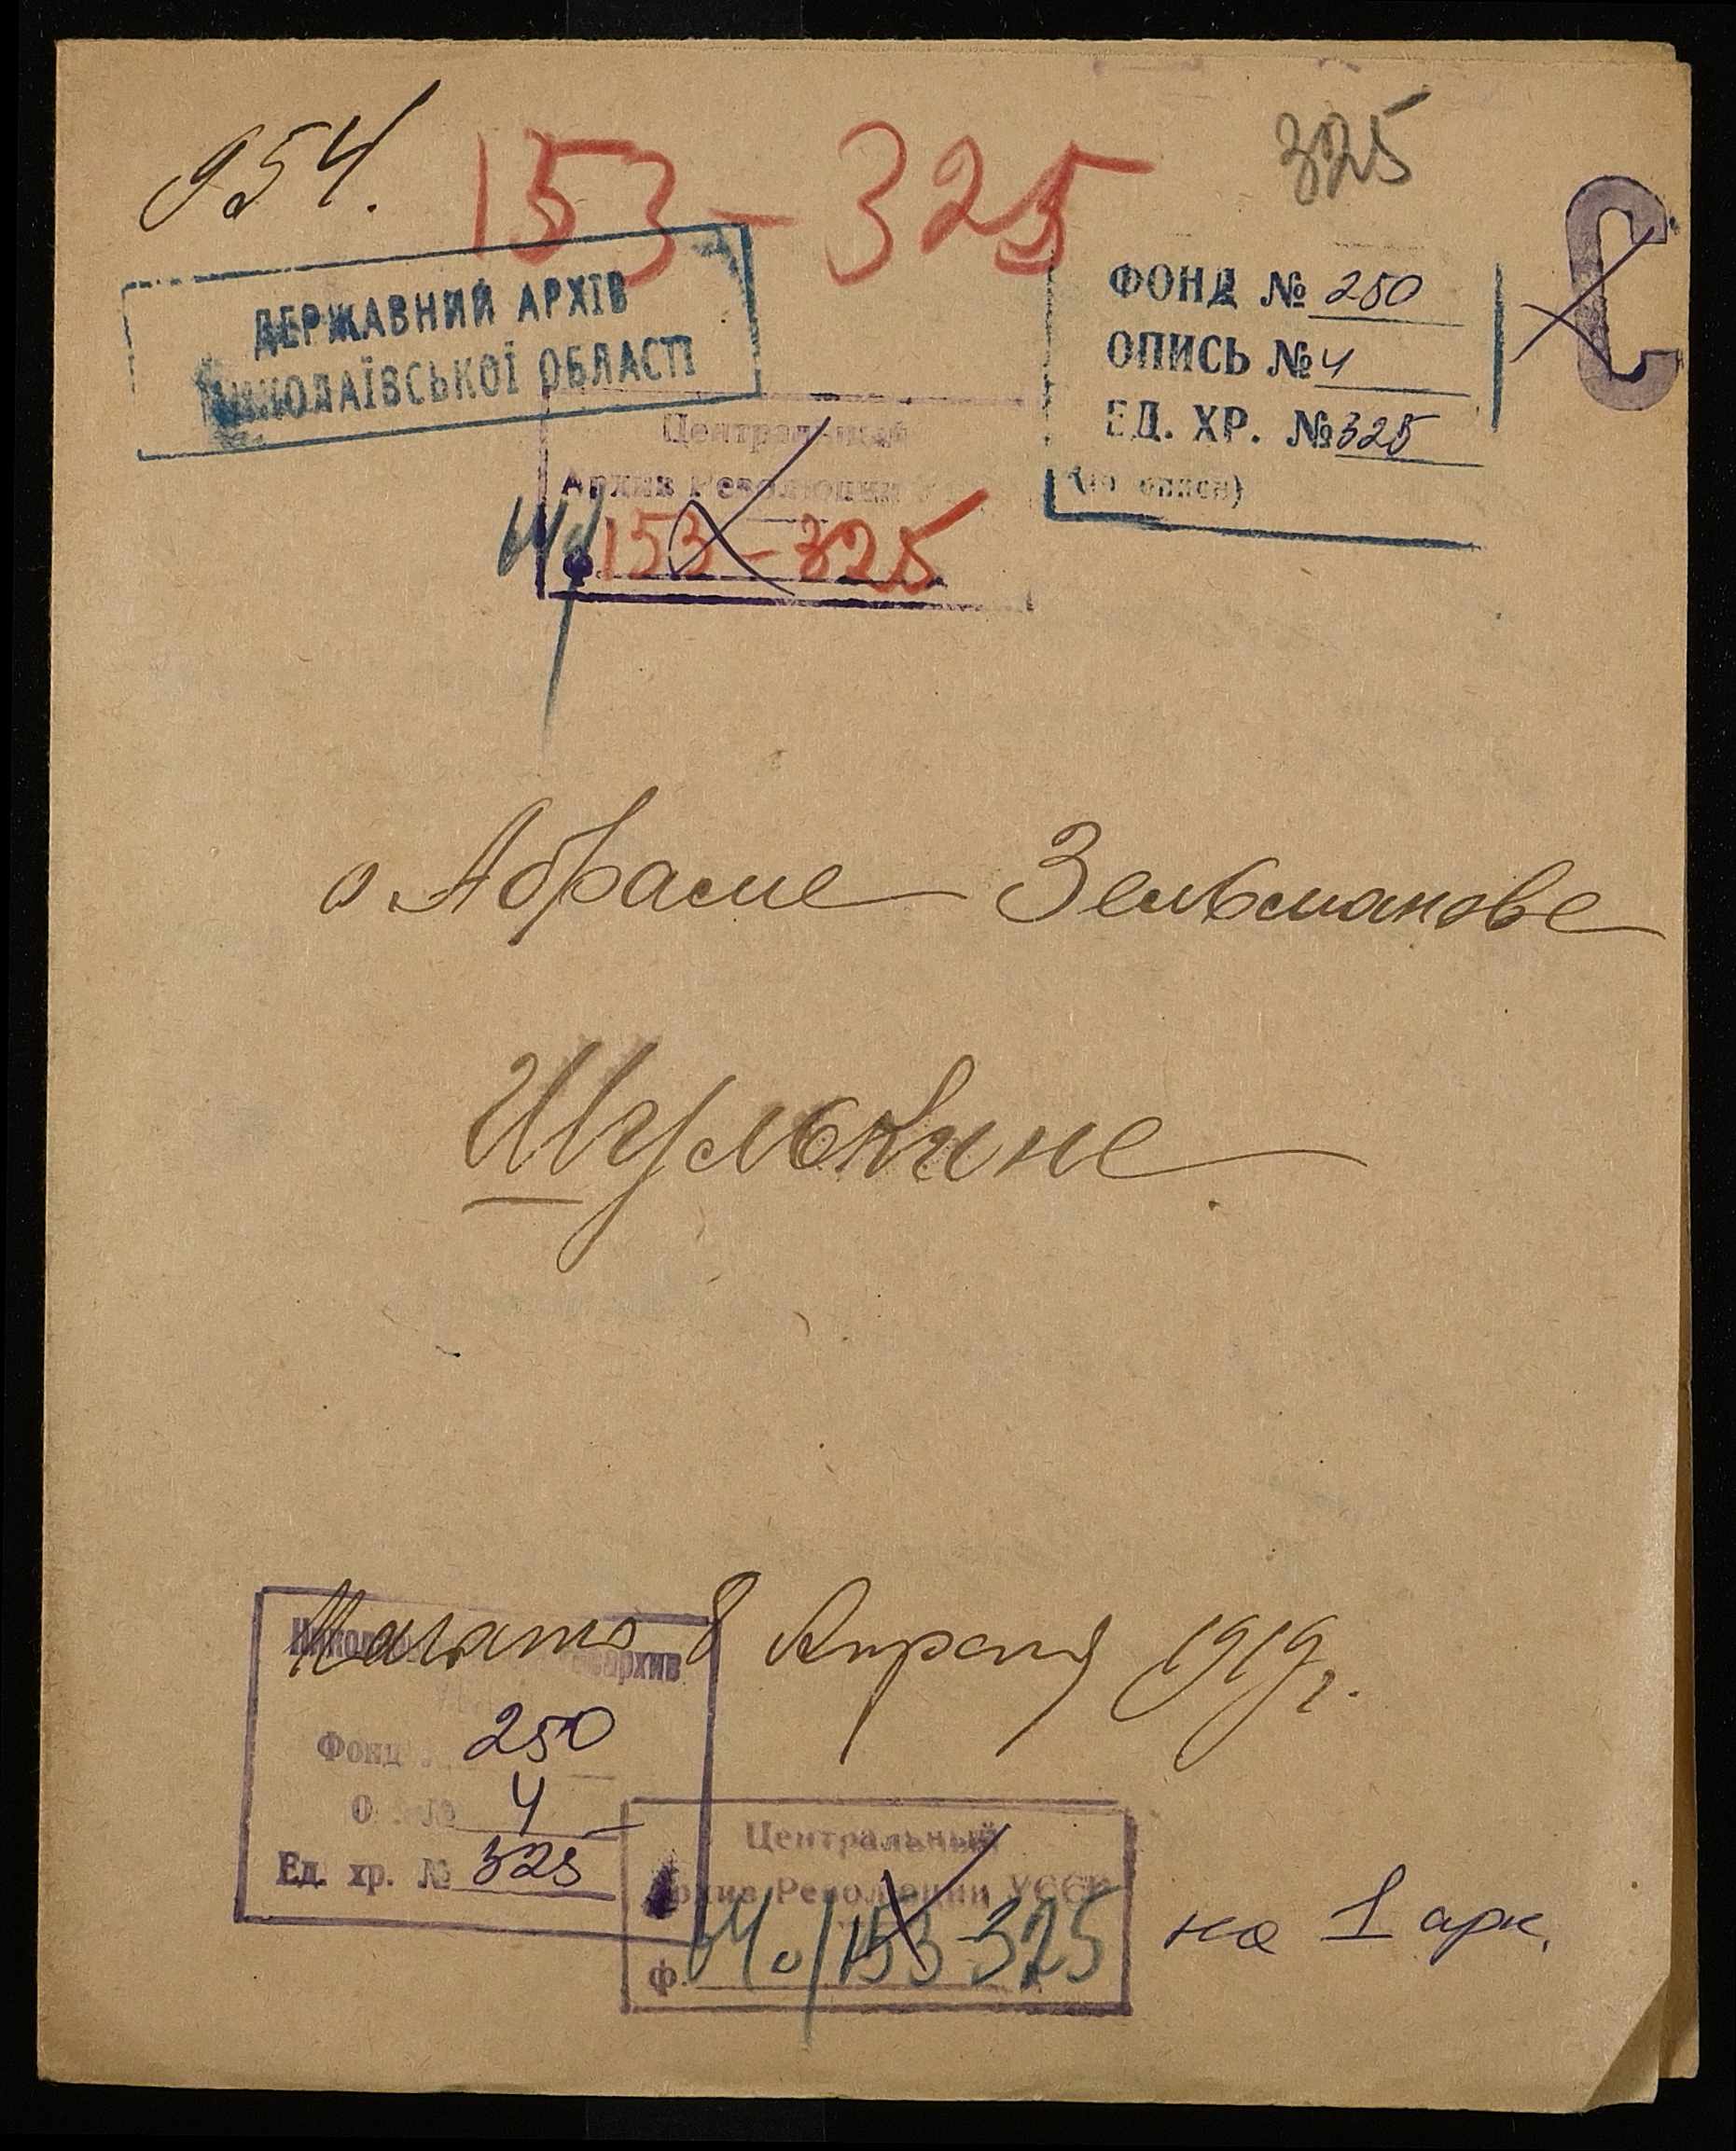 954.
153-325
325
ДЕРЖАВНИЙ АРХІВ
МИКОЛАЇВСЬКОЇ ОБЛАСТІ
ФОНД № 250
ОПИСЬ № 4
ЕД. ХР. № 325
Центральный
Архив Революции
ф. 153-325
о Абраме Зельманове
Шулькине
Начато 8 Апреля 1919 г.
Фонд 250
О № 4
Ед. хр. № 325
Центральный
Архив Революции УССР
ф. 153-325
на 1 арк.